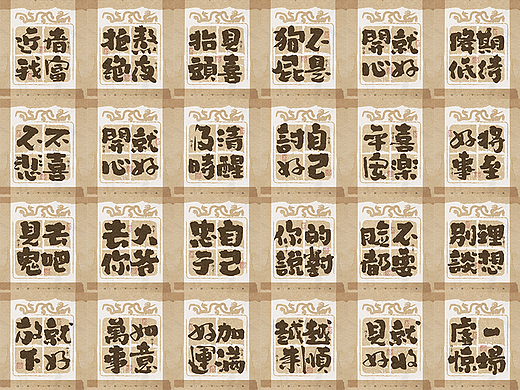 近我者富
拒絕熬夜
抬頭見喜
狗屁不是
開心就好
降低期待
不悲不喜
開心就好
及時清醒
討好自己
平安喜樂
好事將至
見鬼去吧
去你大爷
忠于自己
你說的對
臉都不要
別談理想
放下就好
萬事如意
好運加满
越越順
見好就收
虛惊一場